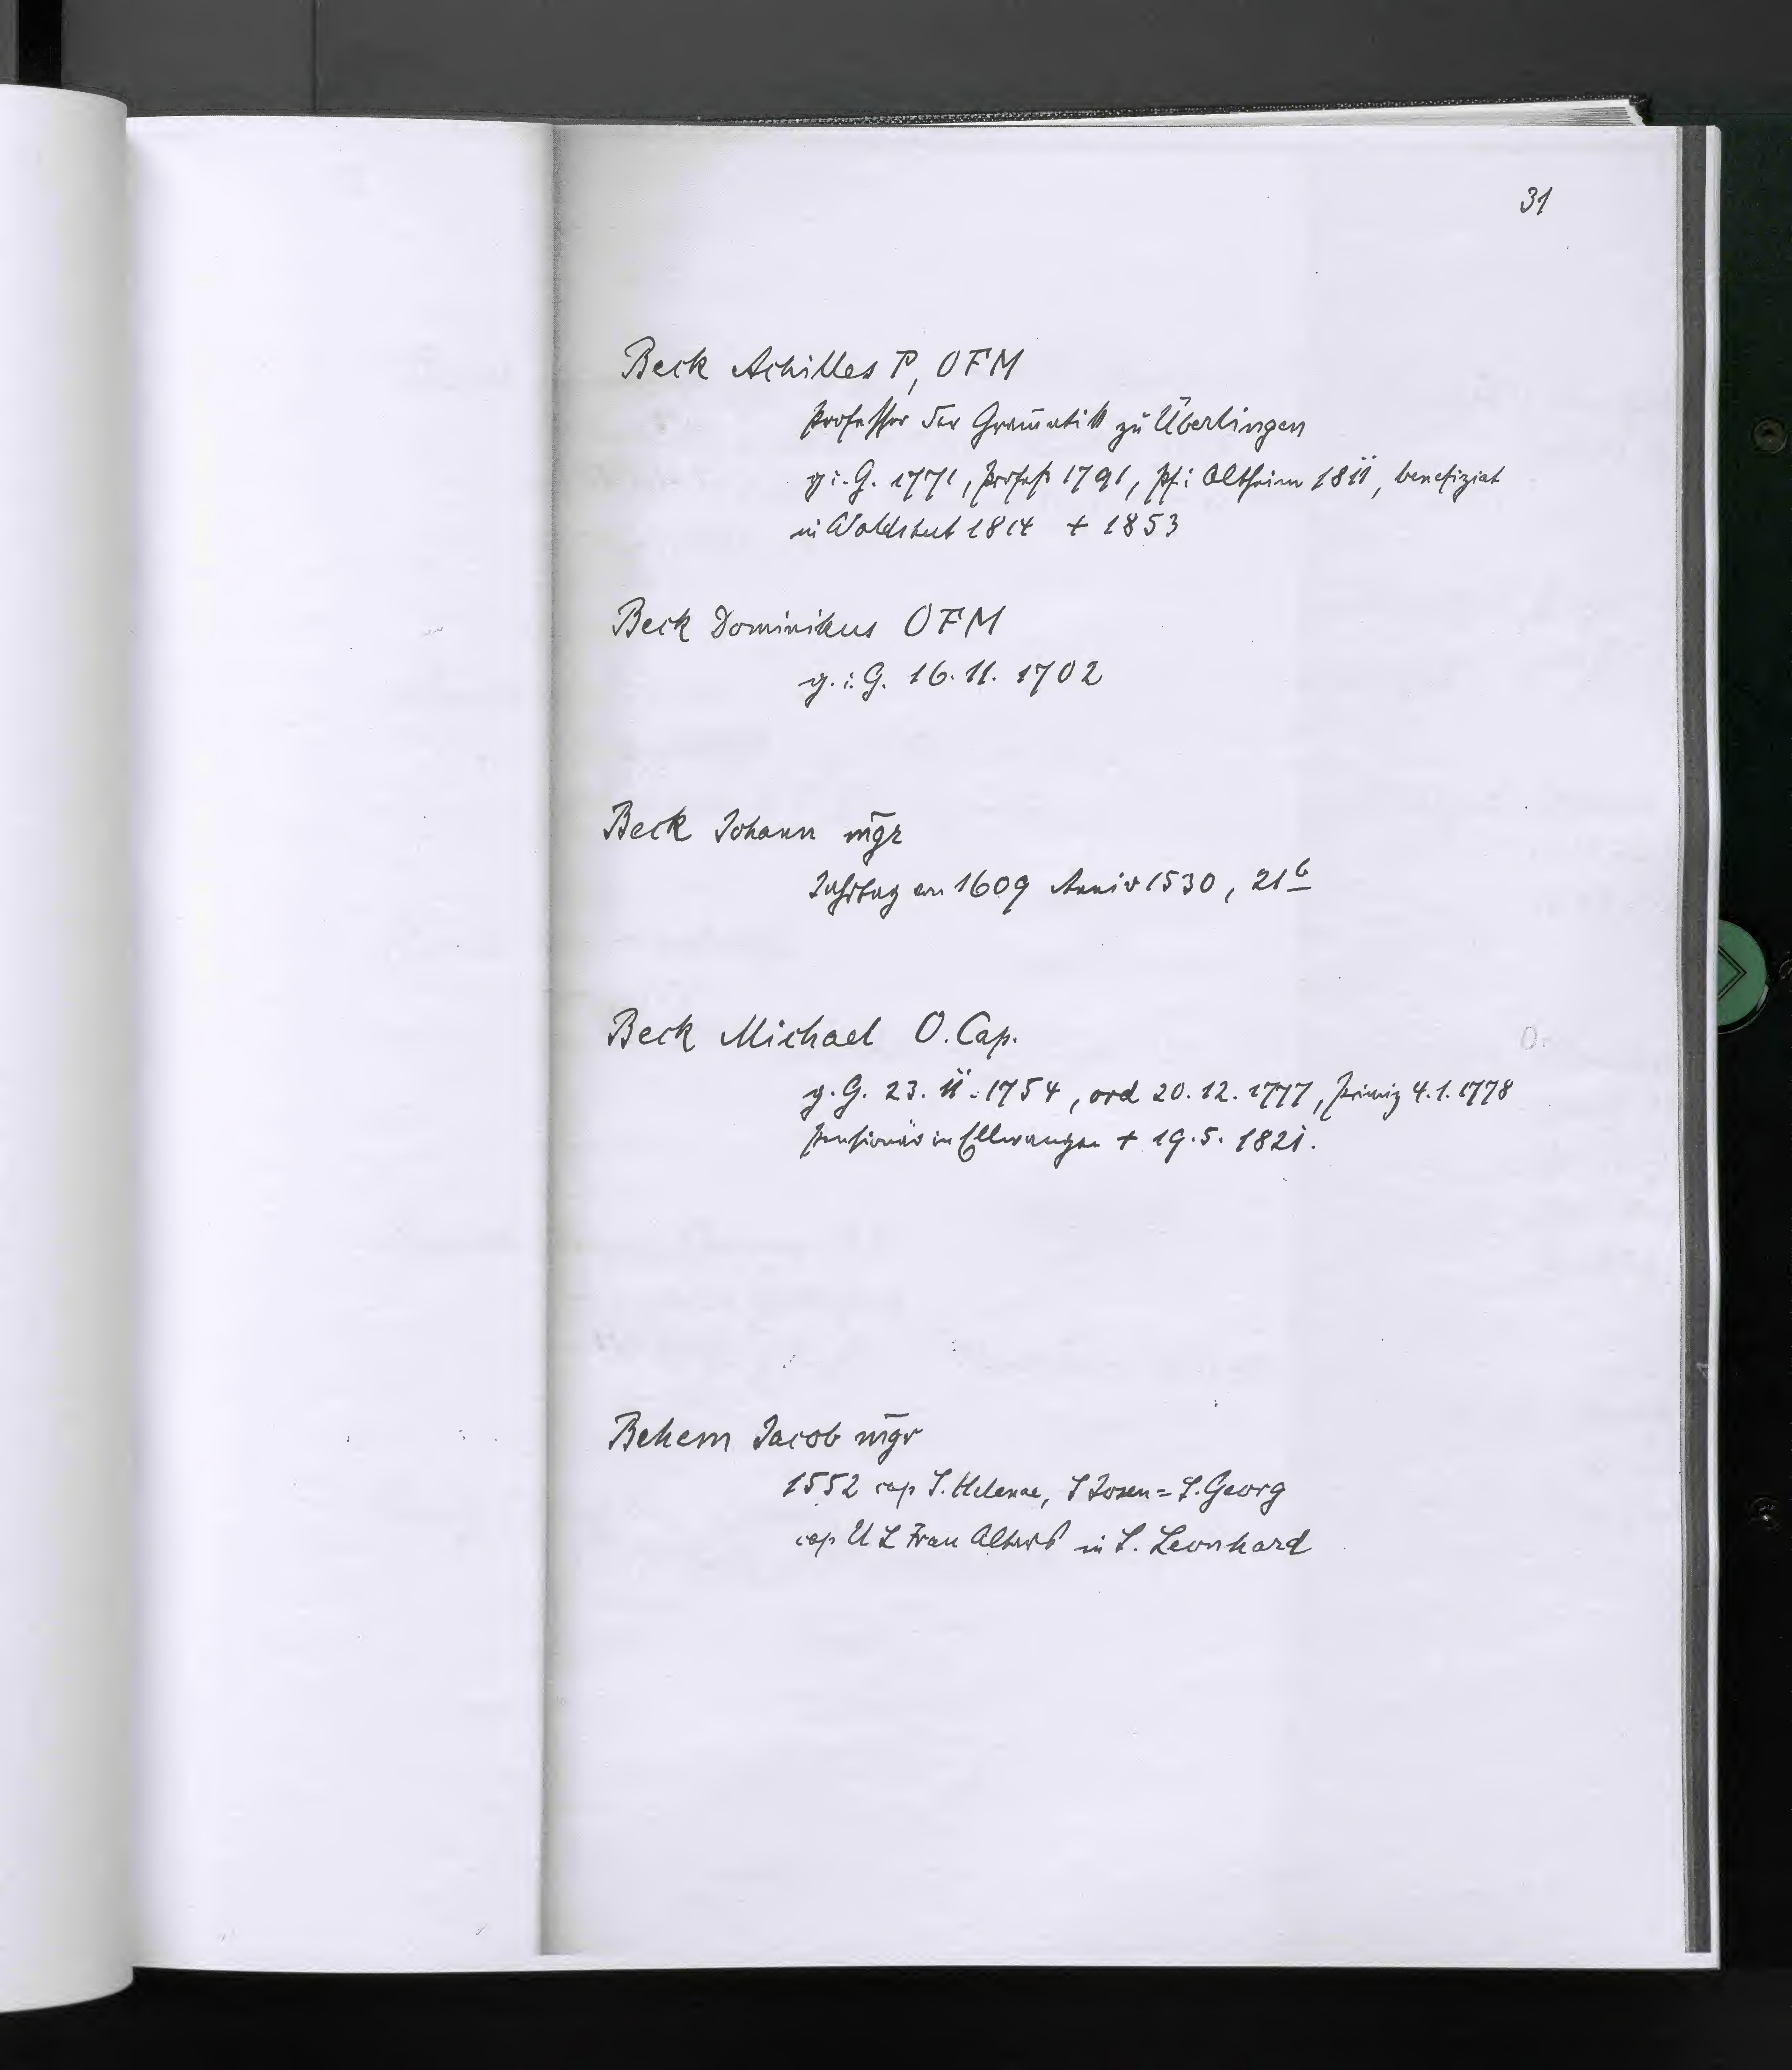 31
Beck Achilles P, OFM
Professor der Gram̄atik zu Überlingen
g i. G. 1771, Profeß 1791, Pf. i Altheim 1811, benefiziat
in Waldshut 1814 + 1853
Beck Dominikus OFM
g. i. G. 16. 11. 1702
Beck Johann m̄gr
Jahrtag 1609 Anniv 1530, 21b
Beck Michael O. Cap.
g. G. 23. 11. 1754, ord 20. 12. 1777, Primiz 4. 1. 1778
Pensionär in Ellwangen + 19. 5. 1821.
Behem Jacob m̄gr
1552 cap S. Helenae, S Josen = S. Georg
cap U L Frau in S. Leonhard